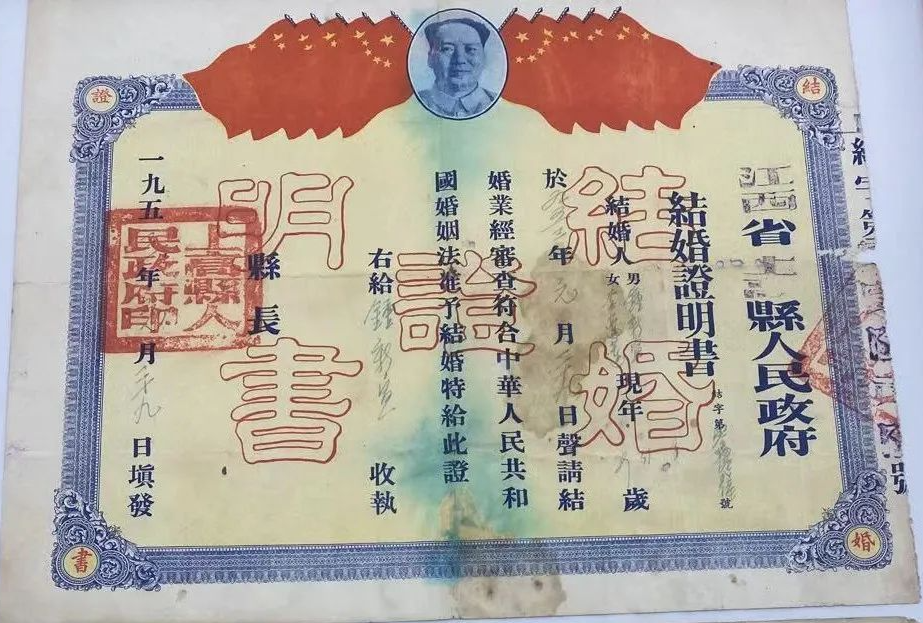 結
婚
證
書
結婚證明書
江西省上高縣人民政府
結婚證明書
結字第 號
結婚人 男 女 現年 歲
於 年元月 日聲請結
婚業經審查符合中華人民共和
國婚姻法准予結婚特給此證
右給鍾 收執
縣長
一九五 年 月 日填發
上高縣人民政府印
號